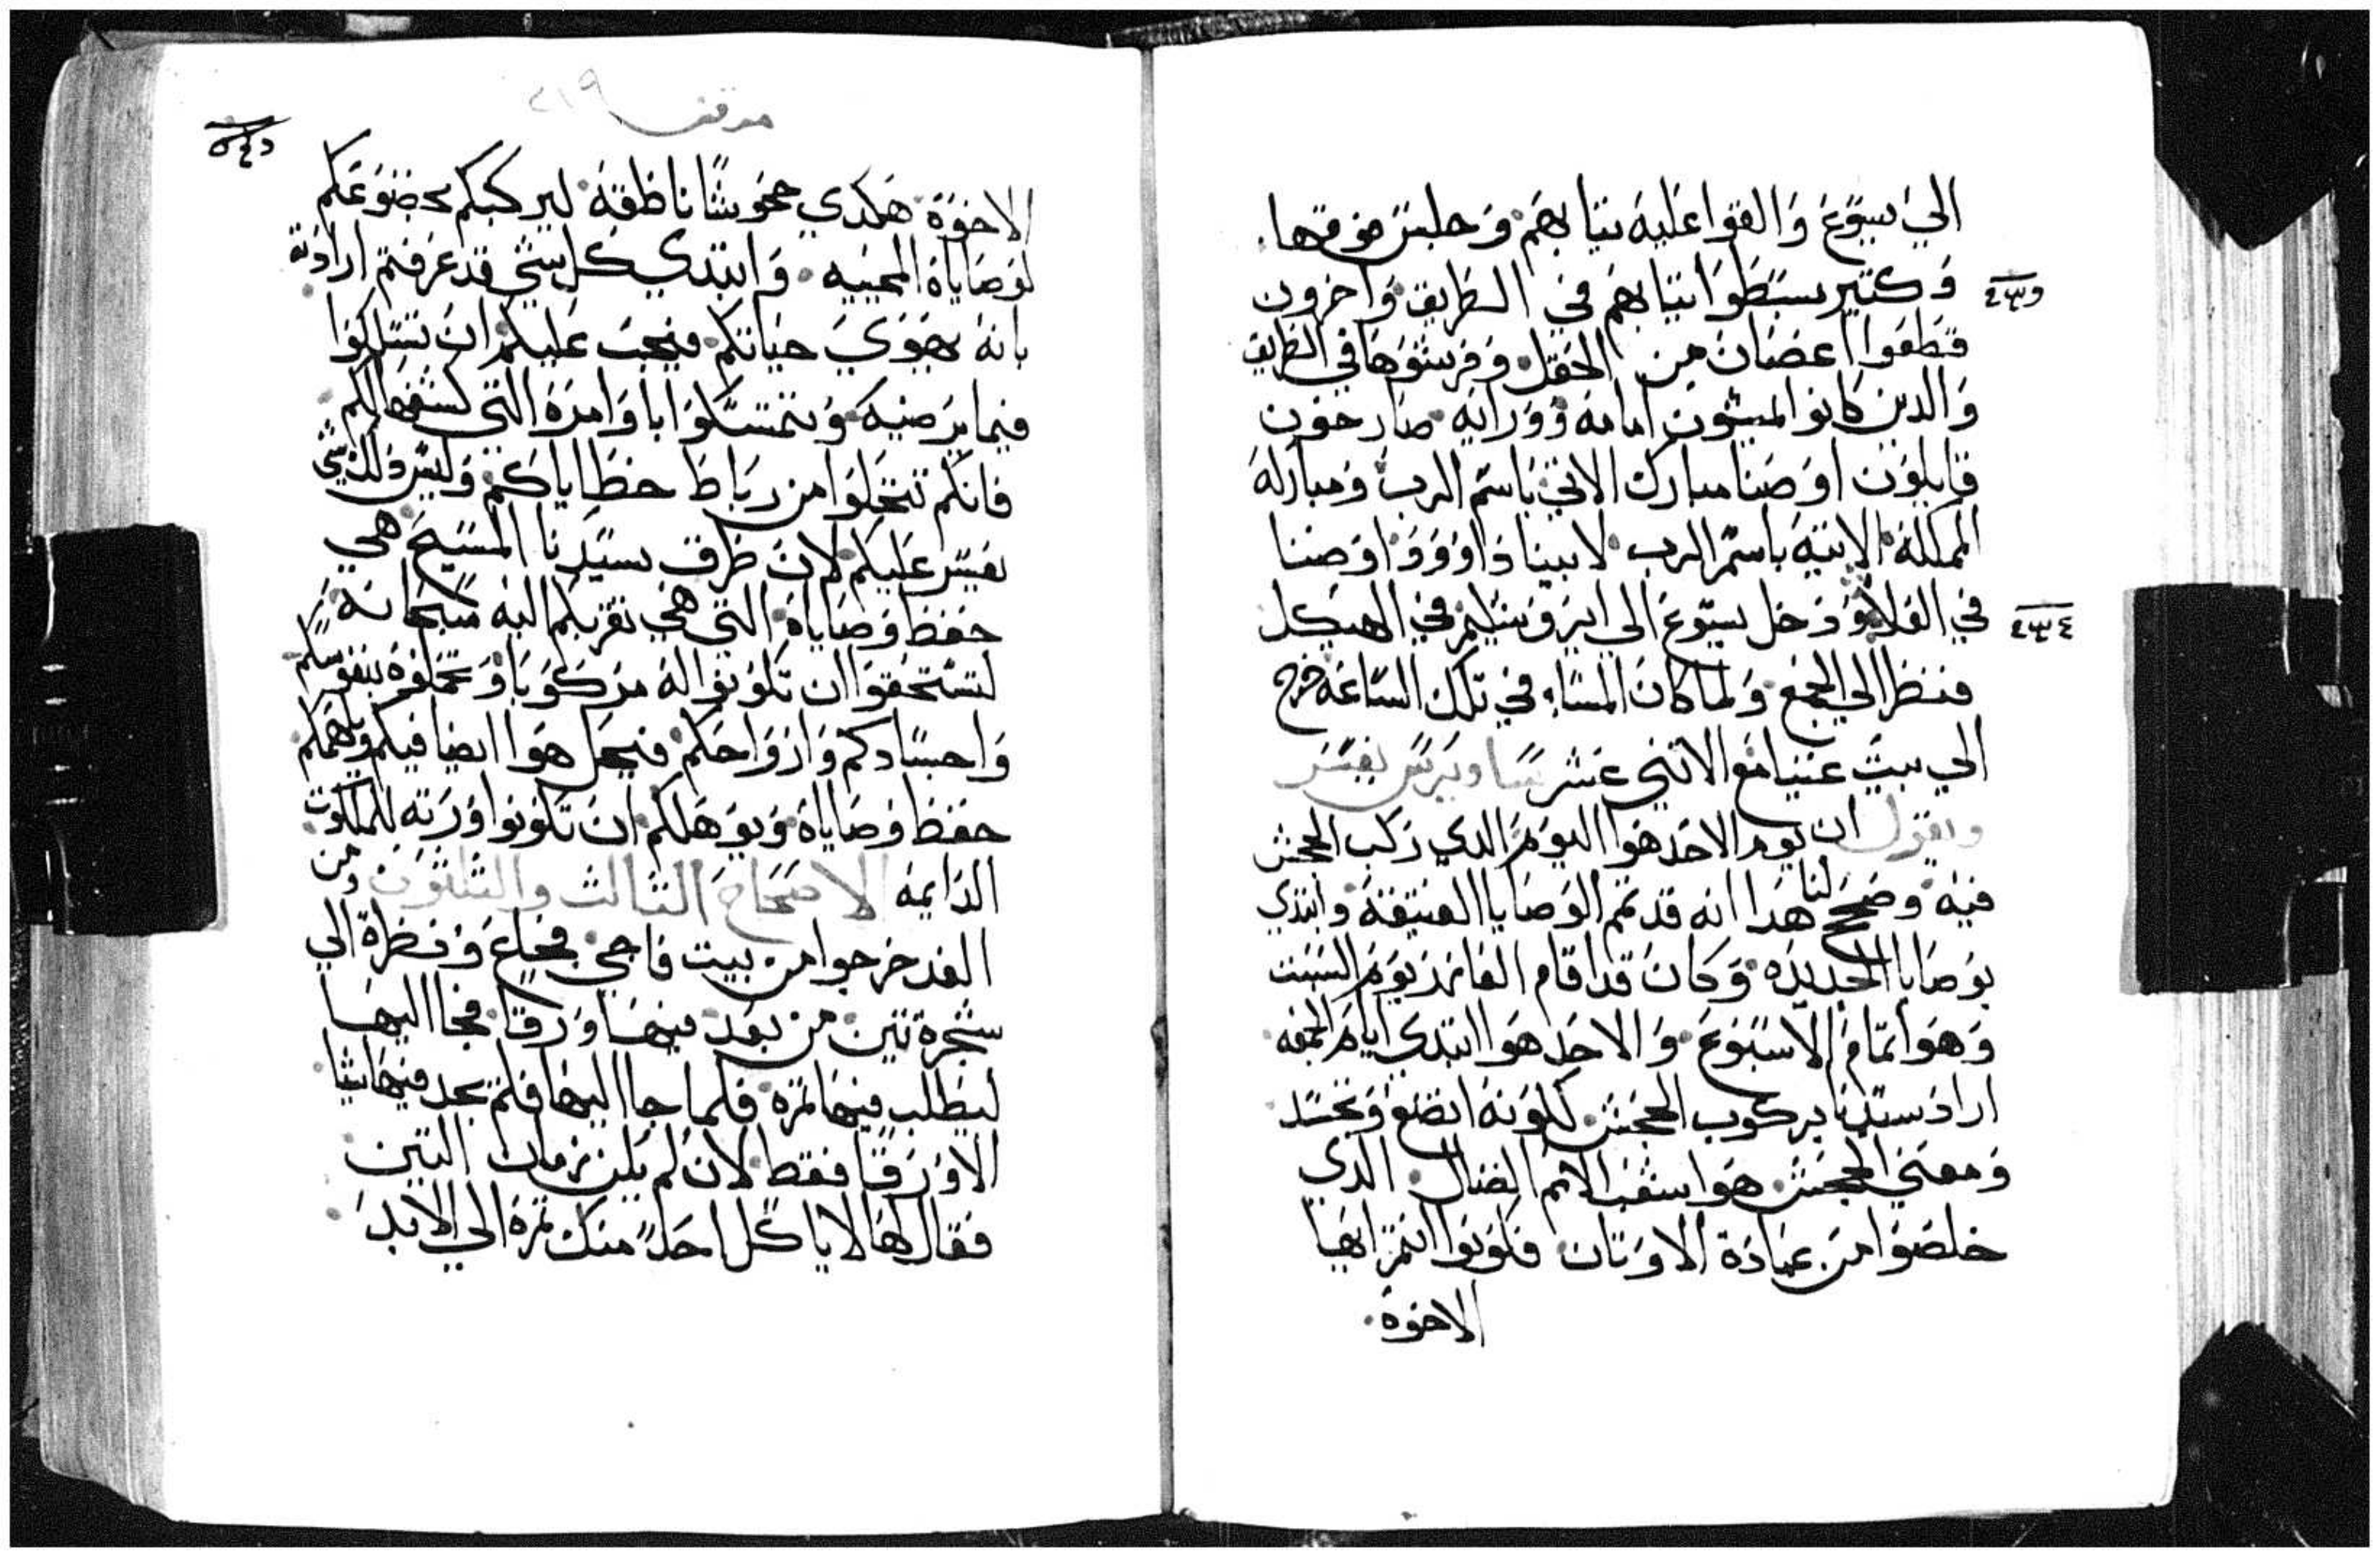 الي يسوع والقوا عليه تيابهم وجلس فوقها.
وكتير بسطوا تيابهم في الطريق واخرون
قطعوا اغصان من الحقل وفرشوها في الطريق
والدين كانوا الميشون امامه وورايه صارخون
قايلون اوصنا مبارك الاتي باسم الرب ومباركة
المملكة الاتية باسم الرب لابينا داوود اوصنا
في العلا ودخل يسوع الي ايروشليم في الهيكل
فنظر الي الجمع ولما كان المساء في تلك الساعة خرج
الي بيت عنيا مع الاتني عشر
ويقول ان يوم الاحد هوا اليوم الدي ركب الجحش
فيه وصحح لنا هدا انه قد تمم الوصايا العتيقة وابتدي
بوصايا الجديده وكان قد اقام العازر يوم السبت
وهو اتمام الاسبوع والاحد هوا ابتدي ايام الجمعه
اراد سيدنا بركوب الجحش لكونه اتضع وتجسد
ومعني الجحش هوا شعب الامم الضال الدي
خلصوا من عبادة الاوتان فكونوا انتم ايها
الاخوة.
مرقس ٤١٩
الاخوة هكدي جحوشا ناطقة ليركبكم بخضوعكم
لوصاياه المحييه وابتدي كل شي قد عرفتم ارادته
بانه يهوي حياتكم فيجب عليكم ان تسلكوا
فيما يرضيه وتتمسكوا باوامره التي كشفها لكم
فانكم تنحلوا من رباط خطاياكم وليس دلك شي
يعسر عليكم لان طرق سيدنا المسيح هي
حفظ وصاياه التي هي تقربكم اليه سبحانه
لتستحقوا ان تكونوا له مركوبا وتحملوه بنفوسكم
واجسادكم وارواحكم فيحل هوا ايضا فيكم ويلهمكم
حفظ وصاياه ويوهلكم ان تكونوا ورته للملكوت
الدايمه الاصحاح التالت والتلتون ومن
الغد خرجوا من بيت فاجي فجاع ونظر الي
شجرة تين من بعد فيها ورقا فجا اليها
ليطلب فيها تمرة فلما جا اليها فلم يجد فيها شيا
الا ورقا فقط لان لم يكن زمان التين
فقال لها لا ياكل احد منك تمرة الي الابد